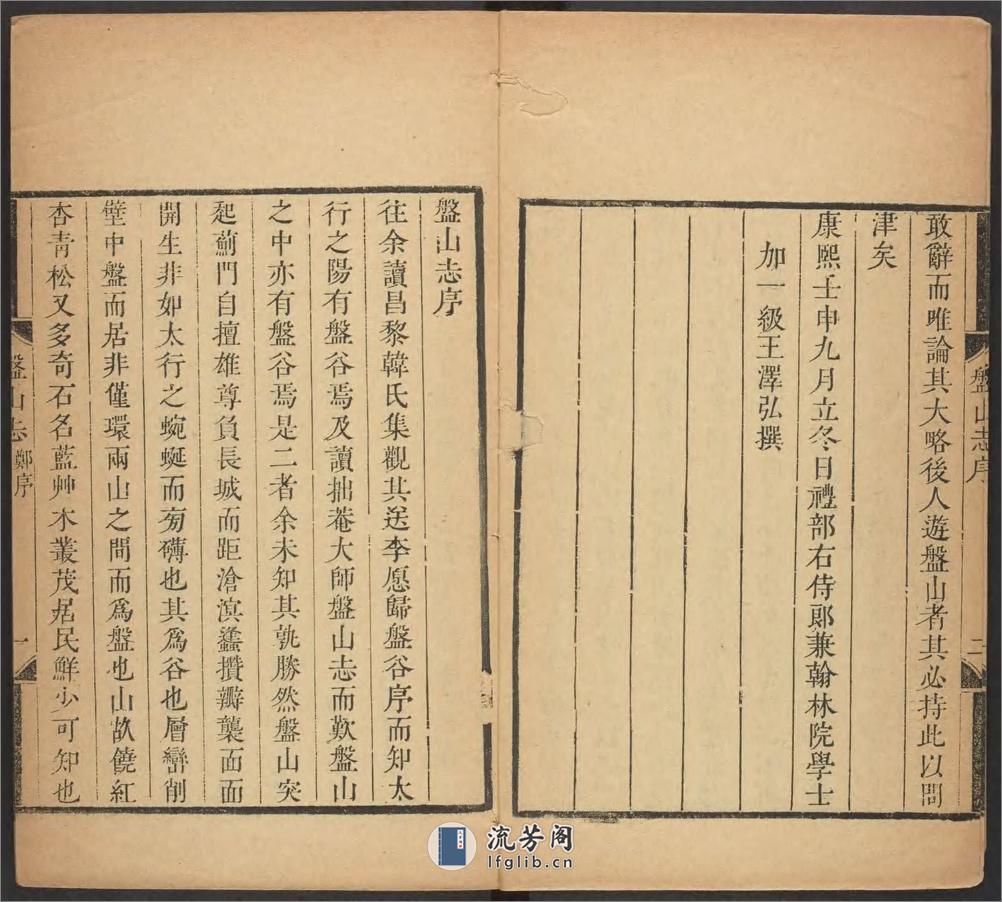 盤山志序
二
敢辭而唯論其大略後人遊盤山者其必持此以問
津矣
康熙壬申九月立冬日禮部右侍郎兼翰林院學士
加一級王澤弘撰
盤山志序
往余讀昌黎韓氏集觀其送李愿歸盤谷序而知太
行之陽有盤谷焉及讀拙菴大師盤山志而歎盤山
之中亦有盤谷焉是二者余未知其孰勝然盤山突
起薊門自擅雄尊負長城而距滄溟蠭攢瓣襲面面
開生非如太行之蜿蜒而旁礴也其爲谷也層巒削
壁中盤而居非僅環兩山之間而爲盤也山故饒紅
杏靑松又多奇石名藍艸木叢茂居民鮮少可知也
盤山志
鄭序
一
流芳阁
lfglib.cn